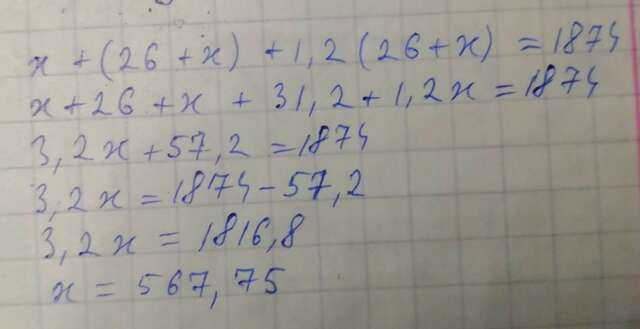 x + (26 + x) + 1,2 (26 + x) = 1874
x + 26 + x + 31,2 + 1,2x = 1874
3,2x + 57,2 = 1874
3,2x = 1874 - 57,2
3,2x = 1816,8
x = 567,75